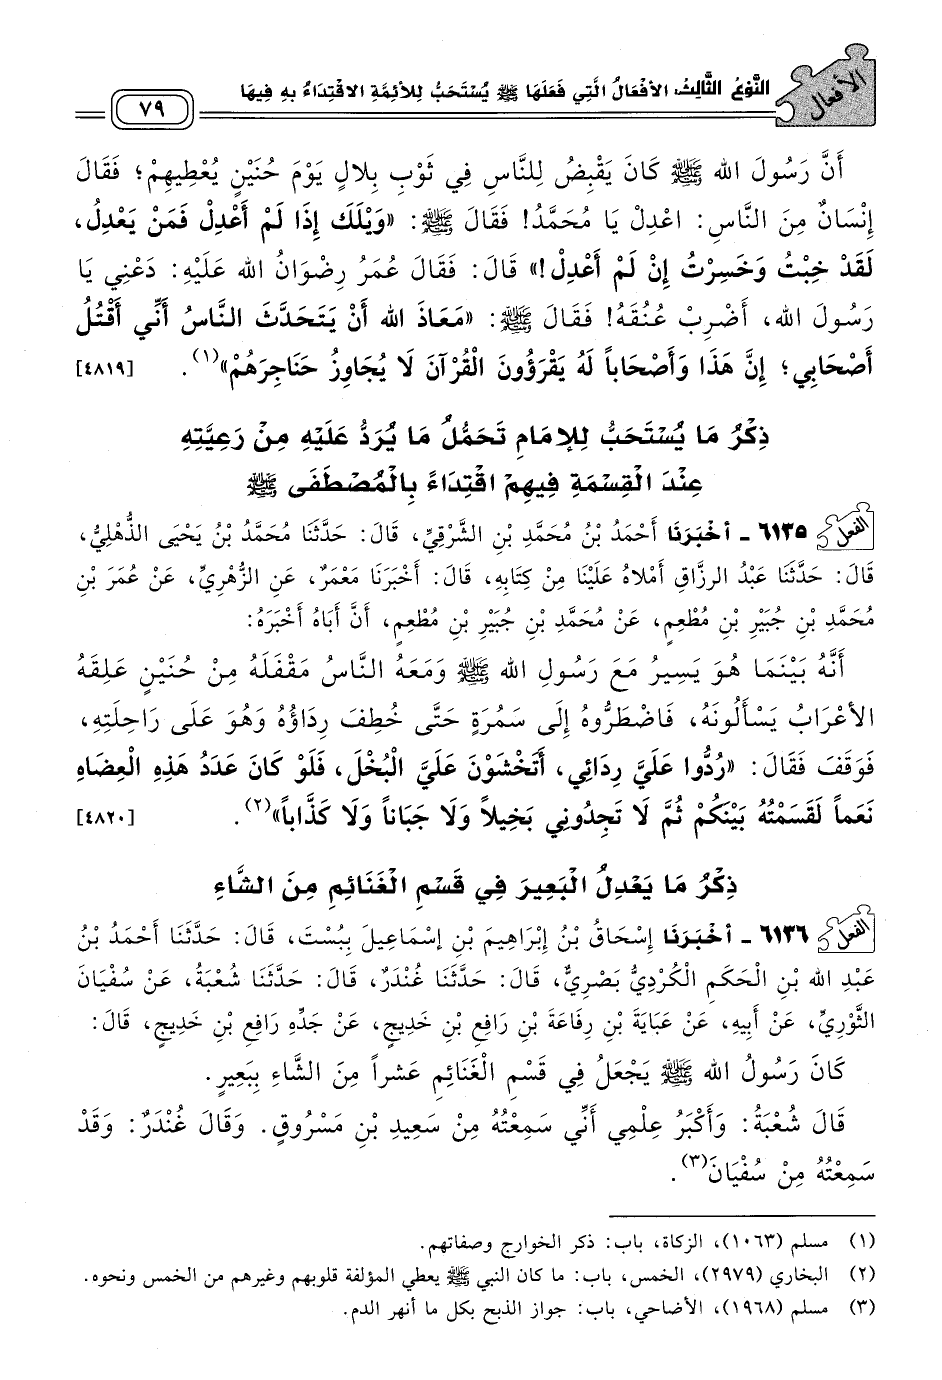 الأفعال
النَّوْعُ الثَّالِثُ الأفْعَالُ الَّتِي فَعَلَهَا ﷺ يُسْتَحَبُّ لِلأئِمَّةِ الاقْتِدَاءُ بِهِ فِيهَا
٧٩
أَنَّ رَسُولَ الله ﷺ كَانَ يَقْبِضُ لِلنَّاسِ فِي ثَوْبِ بِلالٍ يَوْمَ حُنَيْنٍ يُعْطِيهِمْ؛ فَقَالَ
إِنْسَانٌ مِنَ النَّاسِ: اعْدِلْ يَا مُحَمَّدُ! فَقَالَ ﷺ: «وَيْلَكَ إِذَا لَمْ أَعْدِلْ فَمَنْ يَعْدِلُ،
لَقَدْ خِبْتُ وَخَسِرْتُ إِنْ لَمْ أَعْدِلْ!» قَالَ: فَقَالَ عُمَرُ رِضْوَانُ الله عَلَيْهِ: دَعْنِي يَا
رَسُولَ الله، أَضْرِبْ عُنُقَهُ! فَقَالَ ﷺ: «مَعَاذَ الله أَنْ يَتَحَدَّثَ النَّاسُ أَنِّي أَقْتُلُ
أَصْحَابِي؛ إِنَّ هَذَا وَأَصْحَاباً لَهُ يَقْرَؤُونَ الْقُرْآنَ لَا يُجَاوِزُ حَنَاجِرَهُمْ»(١). [٤٨١٩]
ذِكْرُ مَا يُسْتَحَبُّ لِلإمَامِ تَحَمُّلُ مَا يُرَدُّ عَلَيْهِ مِنْ رَعِيَّتِهِ
عِنْدَ الْقِسْمَةِ فِيهِمْ اقْتِدَاءً بِالْمُصْطَفَى ﷺ
الفعل ٦١٣٥ - أَخْبَرَنَا أَحْمَدُ بْنُ مُحَمَّدِ بْنِ الشَّرْقِيِّ، قَالَ: حَدَّثَنَا مُحَمَّدُ بْنُ يَحْيَى الذُّهْلِيُّ،
قَالَ: حَدَّثَنَا عَبْدُ الرزَّاقِ أَمْلاهُ عَلَيْنَا مِنْ كِتَابِهِ، قَالَ: أَخْبَرَنَا مَعْمَرٌ، عَنِ الزُّهْرِيِّ، عَنْ عُمَرَ بْنِ
مُحَمَّدِ بْنِ جُبَيْرِ بْنِ مُطْعِمٍ، عَنْ مُحَمَّدِ بْنِ جُبَيْرِ بْنِ مُطْعِمٍ، أَنَّ أَبَاهُ أَخْبَرَهُ:
أَنَّهُ بَيْنَمَا هُوَ يَسِيرُ مَعَ رَسُولِ الله ﷺ وَمَعَهُ النَّاسُ مَقْفَلَهُ مِنْ حُنَيْنٍ عَلِقَهُ
الأعْرَابُ يَسْأَلُونَهُ، فَاضْطَرُّوهُ إِلَى سَمُرَةٍ حَتَّى خُطِفَ رِدَاؤُهُ وَهُوَ عَلَى رَاحِلَتِهِ،
فَوَقَفَ فَقَالَ: «رُدُّوا عَلَيَّ رِدَائِي، أَتَخْشَوْنَ عَلَيَّ الْبُخْلَ، فَلَوْ كَانَ عَدَدُ هَذِهِ الْعِضَاهِ
نَعَماً لَقَسَمْتُهُ بَيْنَكُمْ ثُمَّ لَا تَجِدُونِي بَخِيلاً وَلَا جَبَاناً وَلَا كَذَّاباً»(٢). [٤٨٢٠]
ذِكْرُ مَا يَعْدِلُ الْبَعِيرَ فِي قَسْمِ الْغَنَائِمِ مِنَ الشَّاءِ
الفعل ٦١٣٦ - أَخْبَرَنَا إِسْحَاقُ بْنُ إِبْرَاهِيمَ بْنِ إِسْمَاعِيلَ بِبُسْتَ، قَالَ: حَدَّثَنَا أَحْمَدُ بْنُ
عَبْدِ الله بْنِ الْحَكَمِ الْكُرْدِيُّ بَصْرِيٌّ، قَالَ: حَدَّثَنَا غُنْدَرٌ، قَالَ: حَدَّثَنَا شُعْبَةُ، عَنْ سُفْيَانَ
الثَّوْرِيِّ، عَنْ أَبِيهِ، عَنْ عَبَايَةَ بْنِ رِفَاعَةَ بْنِ رَافِعِ بْنِ خَدِيجٍ، عَنْ جَدِّهِ رَافِعِ بْنِ خَدِيجٍ، قَالَ:
كَانَ رَسُولُ الله ﷺ يَجْعَلُ فِي قَسْمِ الْغَنَائِمِ عَشْراً مِنَ الشَّاءِ بِبَعِيرٍ.
قَالَ شُعْبَةُ: وَأَكْبَرُ عِلْمِي أَنِّي سَمِعْتُهُ مِنْ سَعِيدِ بْنِ مَسْرُوقٍ. وَقَالَ غُنْدَرٌ: وَقَدْ
سَمِعْتُهُ مِنْ سُفْيَانَ(٣).
(١) مسلم (١٠٦٣)، الزكاة، باب: ذكر الخوارج وصفاتهم.
(٢) البخاري (٢٩٧٩)، الخمس، باب: ما كان النبي ﷺ يعطي المؤلفة قلوبهم وغيرهم من الخمس ونحوه.
(٣) مسلم (١٩٦٨)، الأضاحي، باب: جواز الذبح بكل ما أنهر الدم.